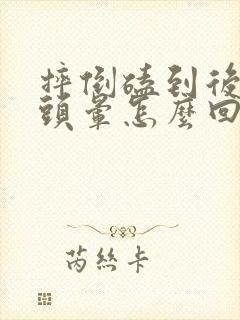 摔倒磕到後
頭暈怎麼回
芮絲卡